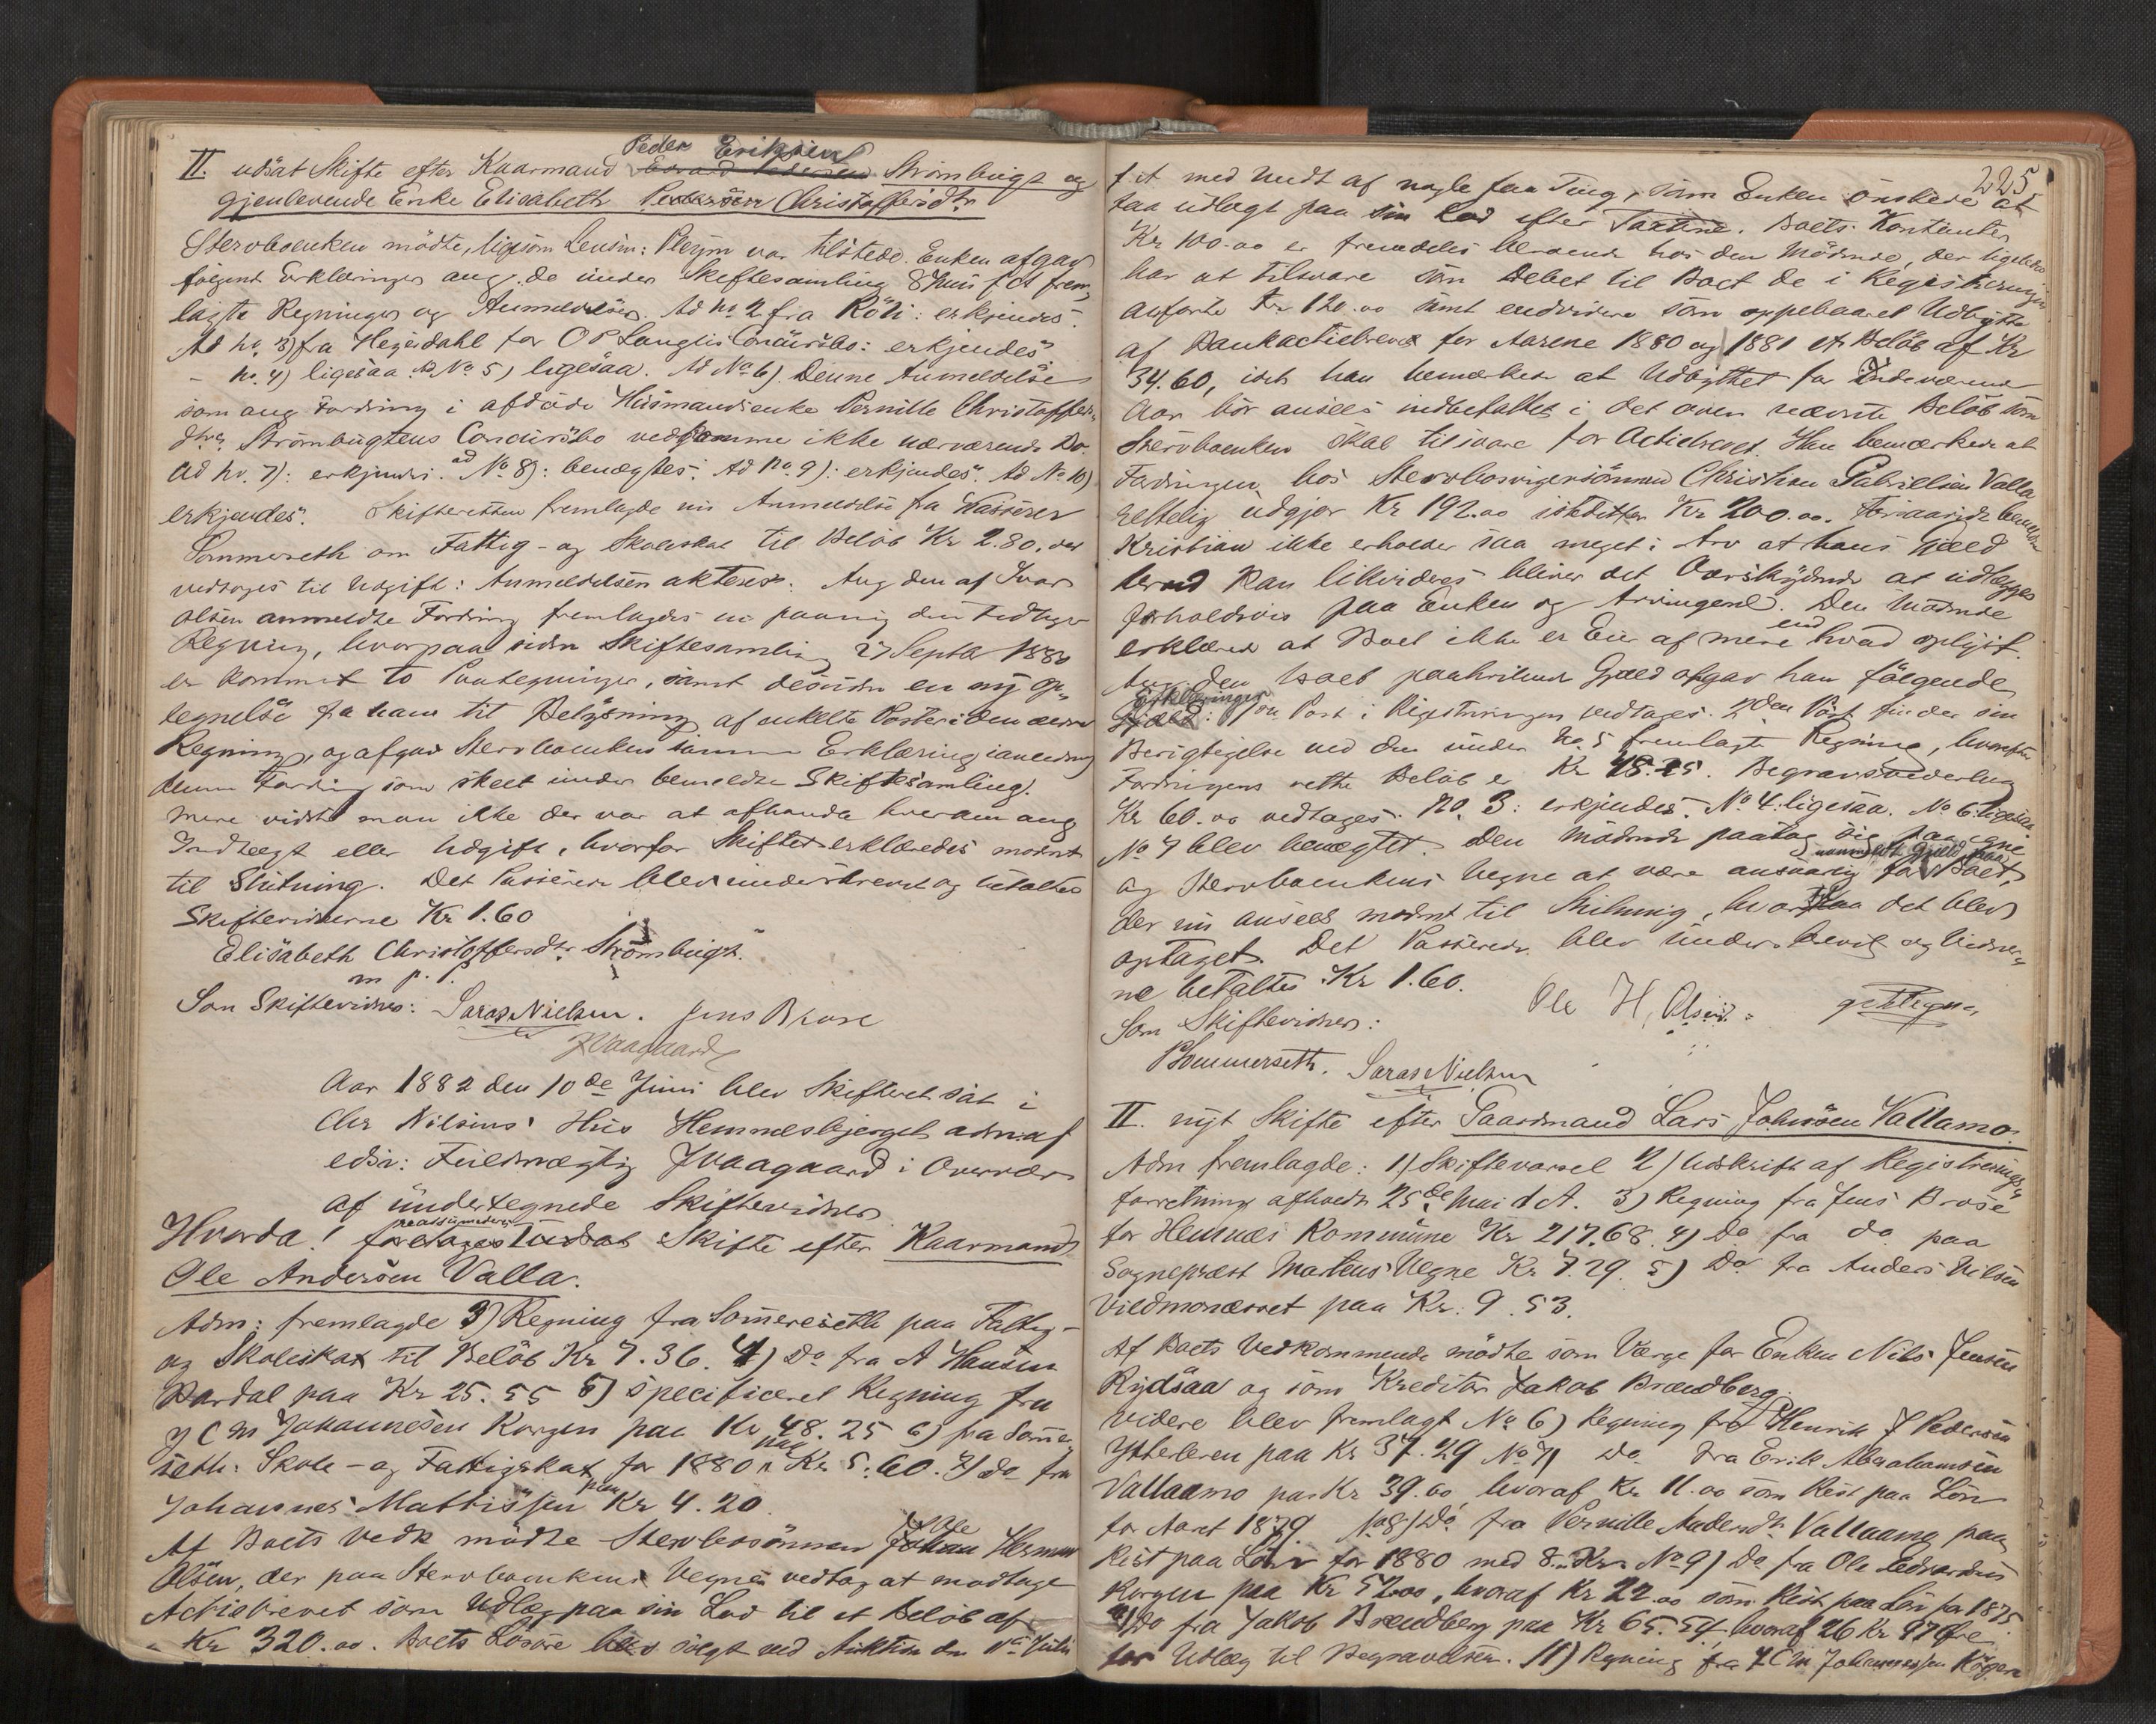 Peder Eriksen
II. udsat Skifte efter Kaarmand Strømbugt og
gjenlevende Enke Elisabeth Pedersen Christoffersdtr
Stervboenken mødte, ligesom Lensm: Pleym var tilstede. Enken afgav
følgende Erklæringer ang. de under Skiftesamling 8 Juni f A frem¬
lagte Regninger og Anmeldelser. Ad No 2 fra Röli: erkjendes.
Ad No. 3) fra Hegerdahl for O P Langlis Concursbo: erkjendes
- No. 4) ligesaa. Ad No 5) ligesaa. Ad No 6). Denne Anmeldelse
som ang Fordring i afdøde Husmandsenke Pernille Christoffers¬
dtrs Strømbugtens Concursbo vedkomme ikke nærværende Bo.
Ad No. 7): erkjendes. ad No 8): benægtes. Ad No. 9): erkjendes. Ad No 10)
erkjendes. Skifteretten fremlagde nu Anmeldelse fra Kasserer
Sommerseth om Fattig- og Skoleskat til Beløb Kr 2.80, der
vedtoges til Udgift: Anmeldelsen akteres. Ang den af Ivar
Olsen anmeldte Fordring fremlagdes nu paany den tidligere
Regning, hvorpaa siden Skiftesamling 27 Septbr 1880
er kommet to Paategninger, samt desuden en ny Op¬
tegnelse fra ham til Belysning af enkelte Poster i den
Regning, og afgav Stervboenken samme Erklæring i anledning
denne Fordring som skeet under bemeldte Skiftesamling.
Mere vidste man ikke der var at afhandle hverken ang
Indtægt eller Udgift, hvorfor Skiftet erklæredes modent
til Slutning. Det Passerede blev underskrevet og betaltes
Skiftevidnerne Kr 1.60
Elisabeth Christoffersdtr Strømbugt.
m p. p.
Som Skiftevidner: Saras Nielsen. Jens Brose
JVaagaard
Aar 1882 den 10de Juni blev Skifteret sat i
Chr Nilsens' Hus Hemnesbjerget adm. af
edsv: Fuldmægtig JVaagaard i Overvær
af undertegnede Skiftevidner
Hvorda! reassumeredes
foretages udsat Skifte efter Kaarmand
Ole Andersen Valla.
Adm: fremlagde 3) Regning fra Sommerseth paa Fattig-
og Skoleskat til Beløb Kr 7.36. 4) Do fra A Hansen
Bardal paa Kr 25.55 5) specificeret Regning fra
J C M Johannesen Korgen paa Kr 48.25 6) fra Sommer¬
seth: Skole- og Fattigskat for 1880 paa Kr 5.60. 7) Do fra
Johannes Mattissen paa Kr 4.20
Af Boets Vedk mødte Stervbosønnen Ole Herman
Olsen, der paa Stervboenkens Vegne vedtog at modtage
Actiebrevet som Udlæg paa sin Lod til et Beløb af
Kr 320.00. Boets Løsøre blev solgt ved Auktion den 11te Juli
225
f A med Undt af nogle faa Ting, som Enken ønskede at
faa udlagt paa sin Lod efter Taxterne. Boets Kontanter
Kr 100.00 er fremdeles beroende hos den Mødende, der ligeledes
har at tilsvare som Debet til Boet de i Registreringen
anførte Kr 120.00 samt endvidere som oppebaaret Udbytte
af Bankactiebrevet for Aarene 1880 og 1881 et Beløb af Kr
34.60, idet han bemærkede at Udbyttet for Indeværende
Aar bör ansees indbefattet i det oven nævnte Beløb som
Stervboenken skal tilsvare for Actiebrevet. Han bemærkede at
Fordringen hos Stervbosvigersönnen Christian Gabrielsen Valla
rettelig udgjør Kr 192.00 istedetfor Kr 200.00. Forsaavidt bemeldte
Kristian ikke erholder saa meget i Arv at hans Gjæld
herved kan likvideres bliver det Overskydende at udlægges
forholdsvis paa Enken og Arvingerne. Den Mødende
erklærede at Boet ikke er Eier af mere end hvad oplyst.
Ang den Boet paahvilende Gjæld afgav han følgende
Erklæringer: 1ste Post i Registreringen vedtages. 2den Post finder sin
Berigtigelse ved den under No. 5 fremlagte Regning, hvorefter
Fordringens rette Beløb er Kr 48.25. Begravelsesvederlag
Kr 60.00 vedtages. No. 3: erkjendes. No 4. ligesaa. No 6. ligesaa
No 7 blev benægtet. Den Mødende paatog sig paa egne
og Stervboenkens Vegne at være ansvarlig for Boet,
der nu ansees modent til Slutning, hvorpaa det blev
optaget. Det Passerede blev underskrevet og Vidner¬
ne betaltes Kr 1.60.
Ole H. Olsen
Som Skiftevidner:
PSommerseth. Saras Nielsen
II. nyt Skifte efter Gaardmand Lars Johnsen Vallamo.
Adm fremlagde: 1) Skiftevarsel 2) Udskrift af Registrerings¬
forretning afholdt 25de Mai d A. 3) Regning fra Jens Brose
for Hemnæs Kommune Kr 217.68. 4) Do fra do paa
Sognepræst Martens' Vegne Kr 7.29. 5) Do fra Anders Nilsen
Vildmonæsset paa Kr. 9.53.
Af Boets Vedkommende mødte som Værge for Enken Nils Jensen
Rydsaa og som Kreditor Jakob Brændberg.
Videre blev fremlagt No 6) Regning fra Henrik J Pedersen
Ytterleren paa Kr 37.29 No 7) Do fra Erik Abrahamsen
Vallaamo paa Kr 39.00 hvoraf Kr 11.00 som Rest paa Løn
for Aaret 1879. No 8) Do fra Pernille Andersdtr Vallaamo paa
Rest paa Løn for 1880 med 8 Kr. No 9) Do fra Ole Edvardsen
Korgen paa Kr 52.00, hvoraf Kr 22.00 som Rest paa Løn for 1875.
Do fra Jakob Brændberg paa Kr 65.54, hvoraf 26 Kr 97 Øre
for Udlæg til Begravelsen. 11) Regning fra J C M Johannessen Korgen